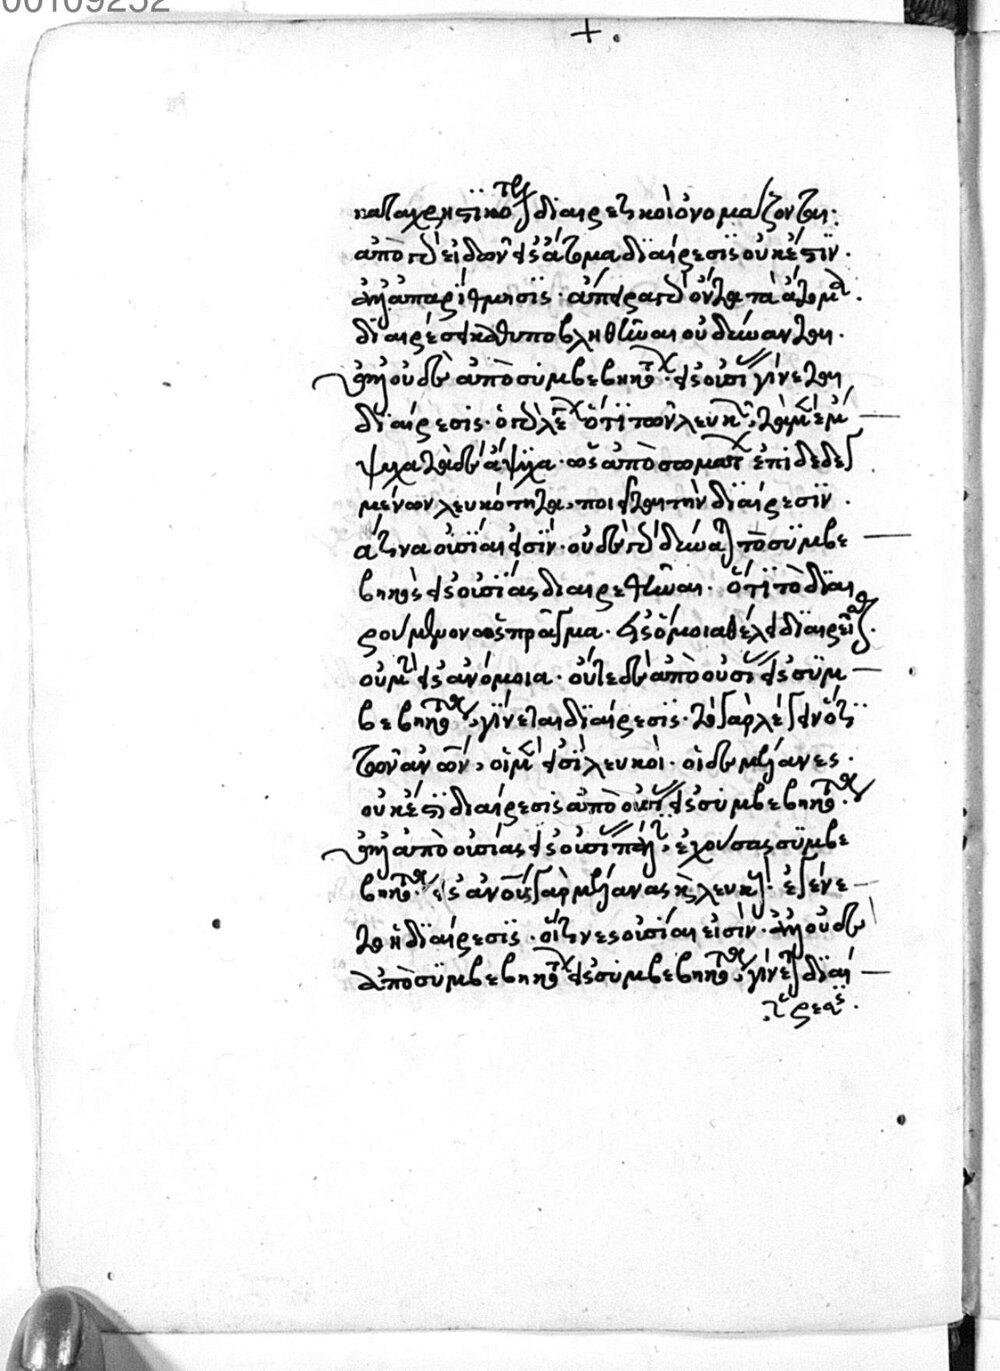 00109252
+
καταχρηστικώτερον διαιρετικοὶ ὀνομάζονται·
ἀπὸ δὲ εἰδῶν εἰς ἄτομα διαίρεσις οὐκ ἔστιν·
ἀλλ' ἀπαρίθμησις· ἄπειρα γὰρ ὄντα τὰ ἄτομα·
διαιρέσει καθυποβληθῆναι οὐ δύνανται·
ἀλλ' οὐδὲ ἀπὸ συμβεβηκότος εἰς οὐσίας γίνεται
διαίρεσις· ὁ γὰρ λέγων ὅτι τῶν λευκῶν, τὰ μὲν ἔμ
ψυχα τὰ δὲ ἄψυχα· ὡς ἀπὸ σωμάτων ἐπιδεδεγ
μένων λευκότητα, ποιεῖται τὴν διαίρεσιν·
ἅτινα οὐσίαι εἰσίν· οὐδὲ γὰρ δύναται τὸ συμβε
βηκὸς εἰς οὐσίας διαιρεθῆναι· ὅτι τὸ διαι
ρούμενον ὡς πρᾶγμα· εἰς ὅμοια θέλει διαιρεῖσθαι·
οὐ μὴν εἰς ἀνόμοια· οὔτε δὲ ἀπὸ οὐσίας εἰς συμ
βεβηκότα, γίνεται διαίρεσις· τὸ γὰρ λέγειν ὅτι
τῶν ἀνθρώπων, οἱ μὲν εἰσὶ λευκοὶ· οἱ δὲ μέλανες·
οὐκ ἔστι διαίρεσις ἀπὸ οὐσίας εἰς συμβεβηκότα·
ἀλλ' ἀπὸ οὐσίας εἰς οὐσίας πάλιν, ἐχούσας συμβε
βηκότα· εἰς ἀνθρώπους γὰρ μέλανας καὶ λευκοὺς· ἐγένε
το ἡ διαίρεσις· οἵτινες οὐσίαι εἰσίν· ἀλλ' οὐδὲ
ἀπὸ συμβεβηκότος εἰς συμβεβηκότα, γίνεται διαί
ρεσις·